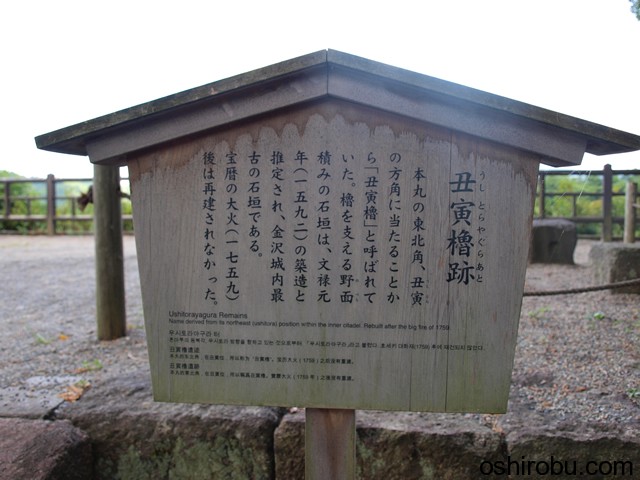 うし とらやぐらあと
丑寅櫓跡
本丸の東北角、丑寅
の方角に当たることか
ら「丑寅櫓」と呼ばれて
いた。櫓を支える野面
積みの石垣は、文禄元
年(一五九二)の築造と
推定され、金沢城内最
古の石垣である。
宝暦の大火(一七五九)
後は再建されなかった。
Ushitorayagura Remains
Name derived from its northeast (ushitora) position within the inner citadel. Rebuilt after the big fire of 1759.
우시토라야구라 터
丑寅櫓遺迹
丑寅櫓遺跡
oshirobu.com